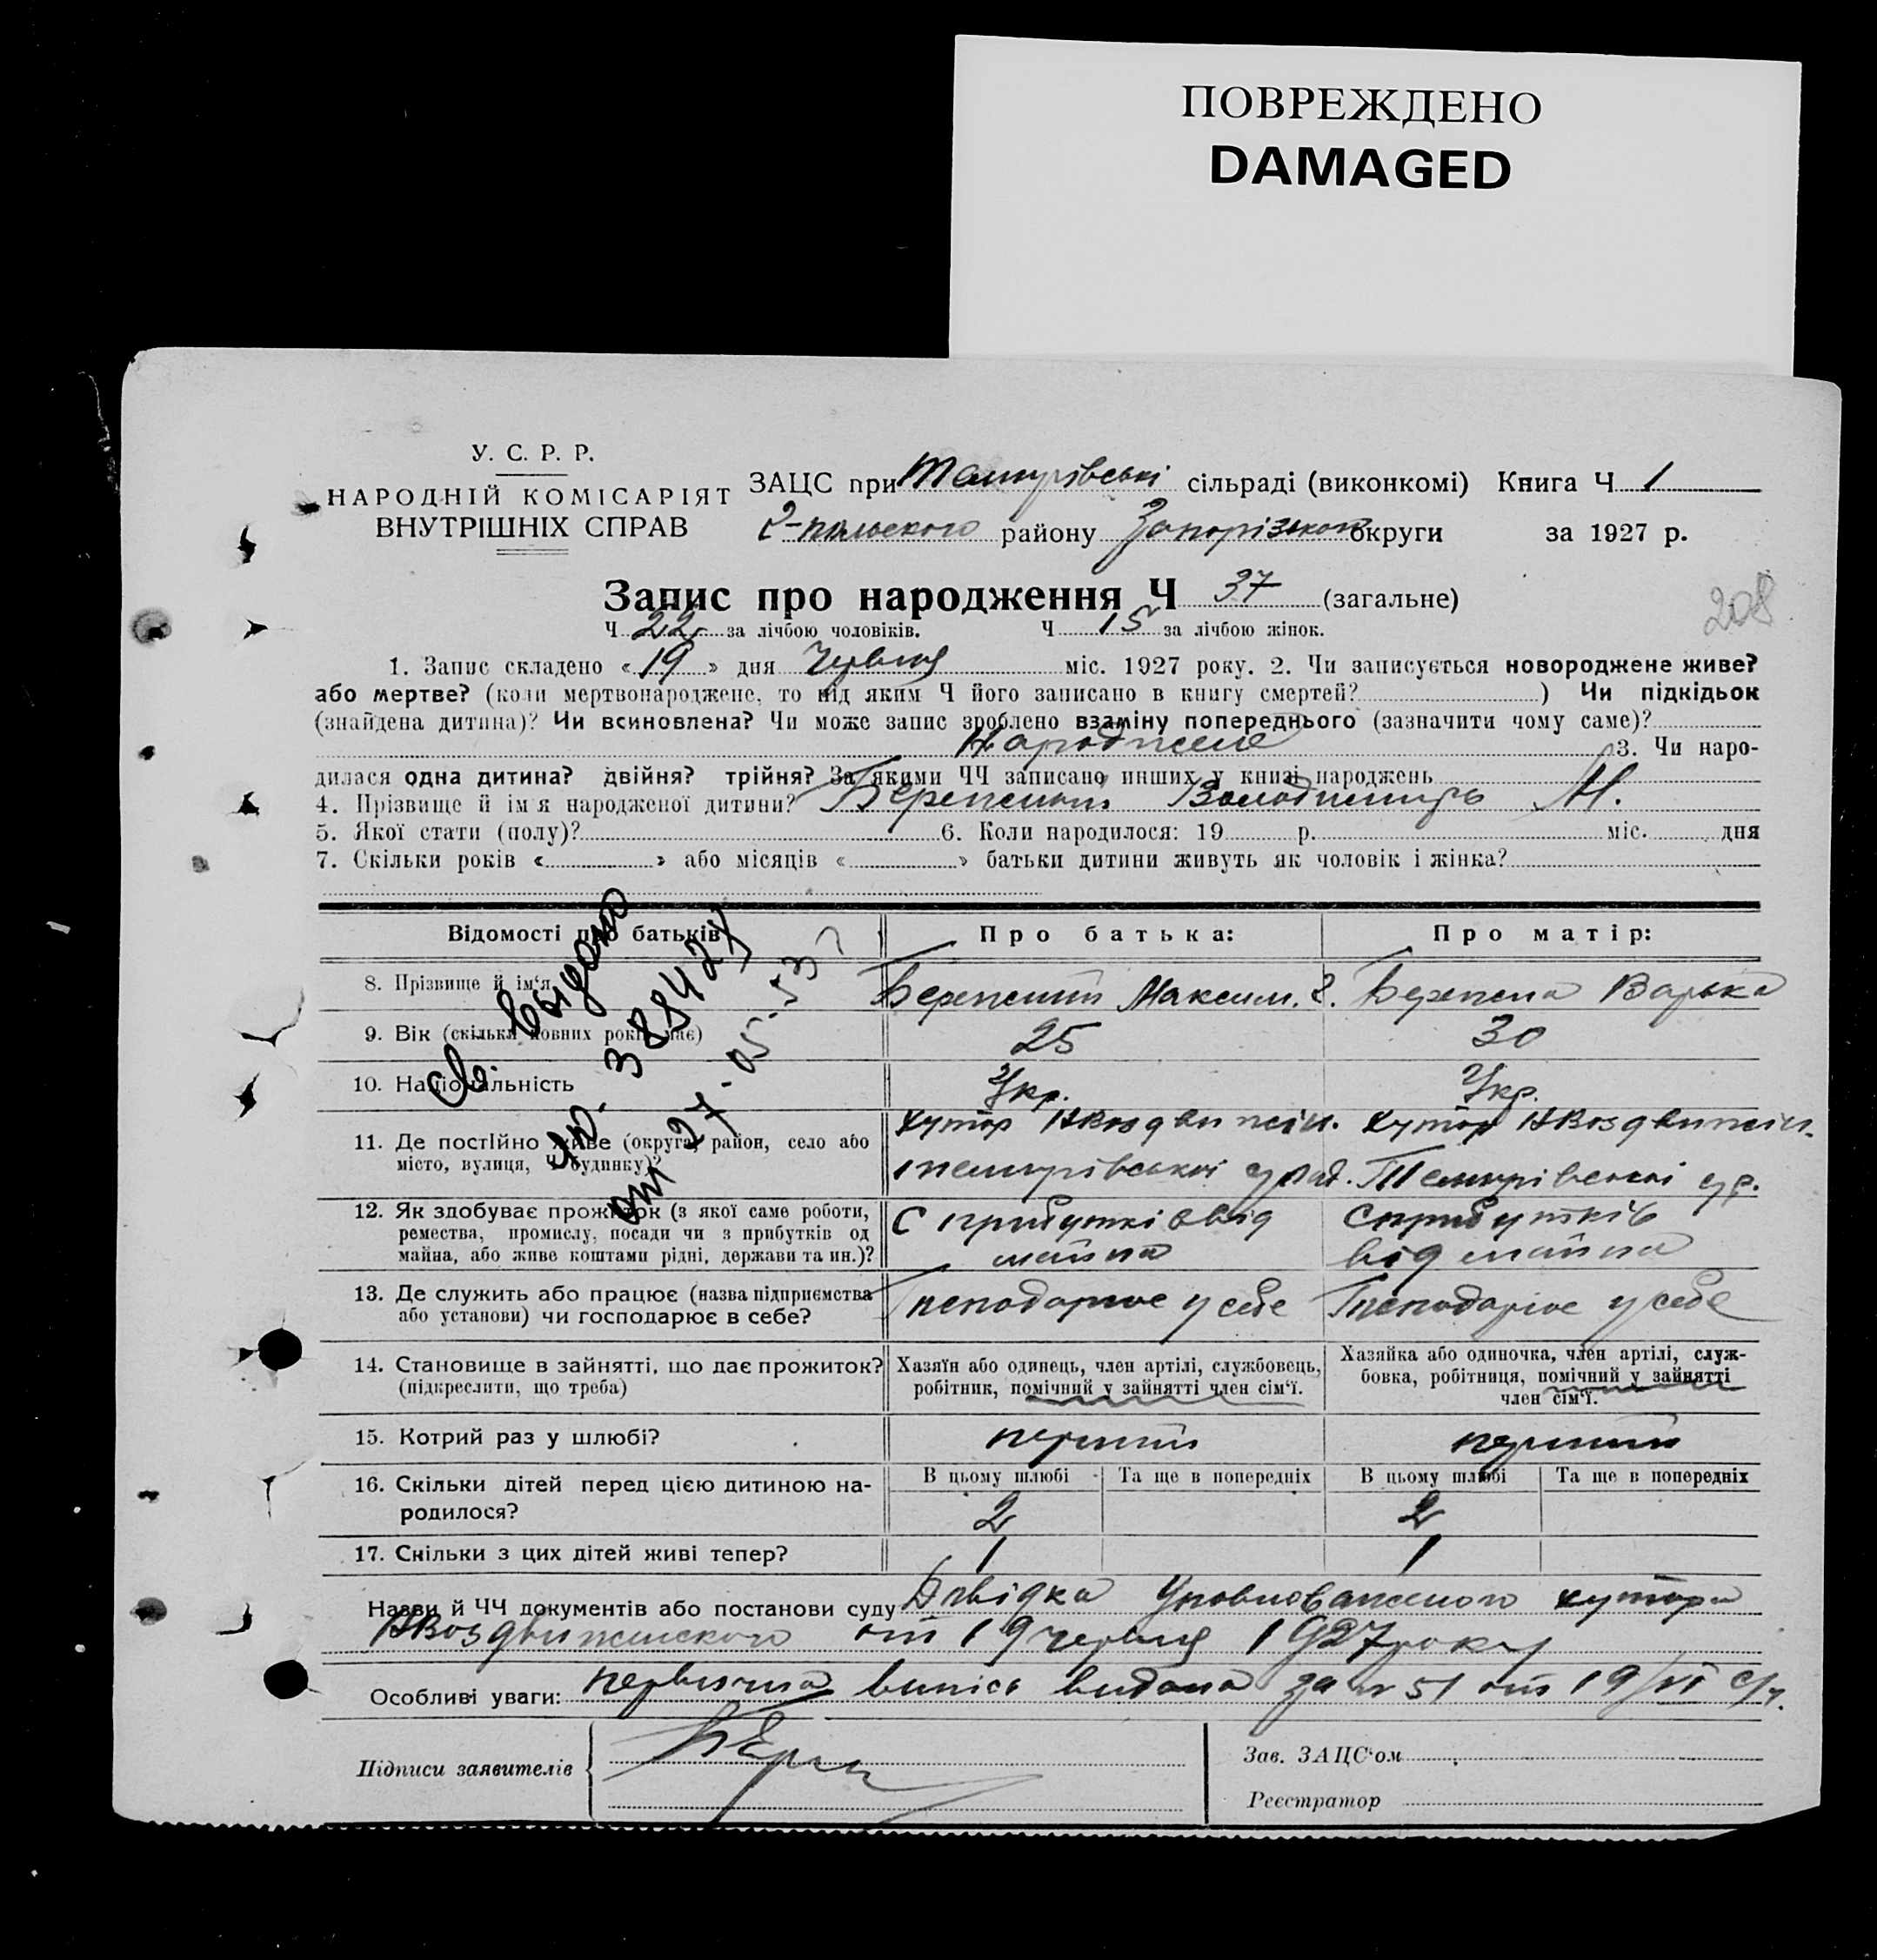 ПОВРЕЖДЕНО
DAMAGED
У. С. Р. Р.
НАРОДНІЙ КОМІСАРІЯТ
ВНУТРІШНІХ СПРАВ
ЗАЦС при Темирівські сільраді (виконкомі) Книга Ч 1
району Запорізької округи за 1927 р.
Запис про народження Ч 37 (загальне)
208
Ч 22 за лічбою чоловіків. Ч 15 за лічбою жінок.
1. Запис складено «19» дня Червня міс. 1927 року. 2. Чи записується новороджене живе?
або мертве? (коли мертвонароджене, то під яким Ч його записано в книгу смертей? ) Чи підкідьок
(знайдена дитина)? Чи всиновлена? Чи може запис зроблено взаміну попереднього (зазначити чому саме)?
3. Чи наро-
дилася одна дитина? двійня? трійня? За якими ЧЧ записано инших у книзі народжень
4. Прізвище й ім'я народженої дитини? Володимир М.
5. Якої стати (полу)? 6. Коли народилося: 19 р. міс. дня
7. Скільки років « » або місяців « » батьки дитини живуть як чоловік і жінка?
Відомості про батьків Про батька: Про матір:
8. Прізвище й ім'я Максим. Варька
9. Вік (скільки повних років має) 25 30
10. Національність Укр. Укр.
11. Де постійно живе (округа, район, село або
місто, вулиця, Ч будинку)?
хутор хутор
Темирівської Темирівської
12. Як здобуває прожиток (з якої саме роботи,
ремества, промислу, посади чи з прибутків од
майна, або живе коштами рідні, держави та ин.)?
С прибутків від
майна
С прибутків
від майна
13. Де служить або працює (назва підприємства
або установи) чи господарює в себе?
Господарює у себе Господарює у себе
14. Становище в зайнятті, що дає прожиток?
(підкреслити, що треба)
Хазяїн або одинець, член артілі, службовець,
робітник, помічний у зайнятті член сім'ї.
Хазяйка або одиночка, член артілі, служ-
бовка, робітниця, помічний у зайнятті
член сім'ї.
15. Котрий раз у шлюбі? перший перший
16. Скільки дітей перед цією дитиною на-
родилося?
В цьому шлюбі Та ще в попередніх В цьому шлюбі Та ще в попередніх
2 2
17. Скільки з цих дітей живі тепер? 1 1
Назви й ЧЧ документів або постанови суду Довідка Уповноваженого хутора
от 19 червня 1927 року
Особливі уваги: первична випись видана за № 51 от 19/VI с/г.
Підписи заявителів
Зав. ЗАЦС'ом
Реєстратор
Св. выдано
от 27-05-53